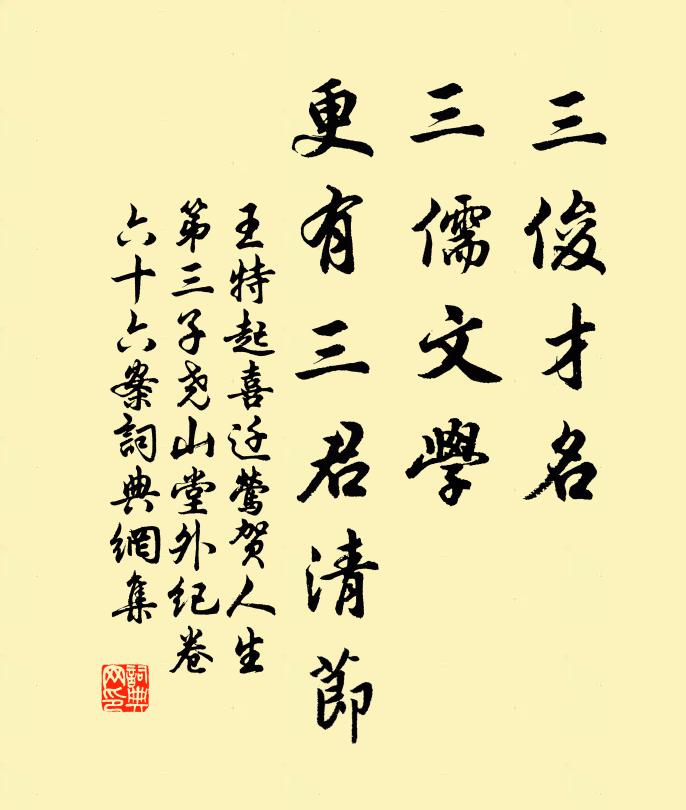 三俊才名
三儒文學
更有三君清節
王特起喜迁莺贺人生
第三子尧山堂外纪卷
六十六案詞典網集
詞典
网印